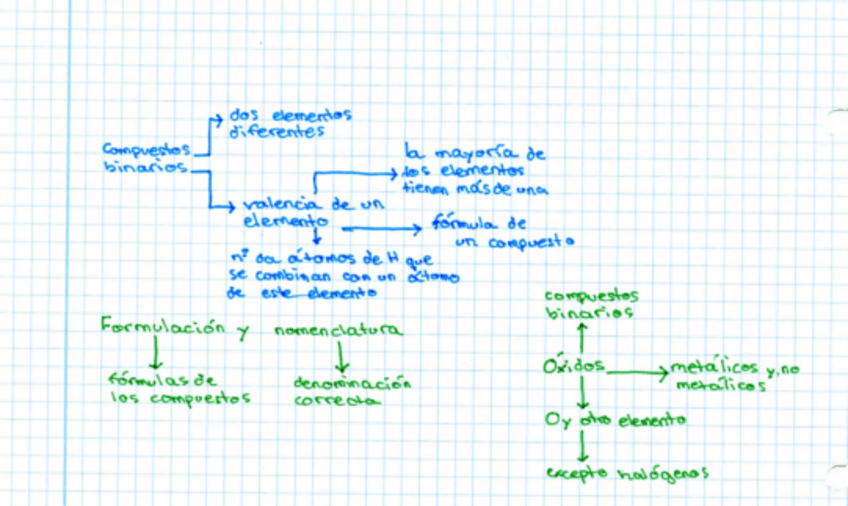 dos elementos
diferentes
Compuestos
binarios
la mayoría de
los elementos
tienen más de una
valencia de un
elemento
fórmula de
un compuesto
nº da átomos de H que
se combinan con un átomo
de este elemento
Formulación y nomenclatura
fórmulas de
los compuestos
denominación
correcta
compuestos
binarios
Óxidos
metálicos y no
metálicos
O y otro elemento
excepto halógenos